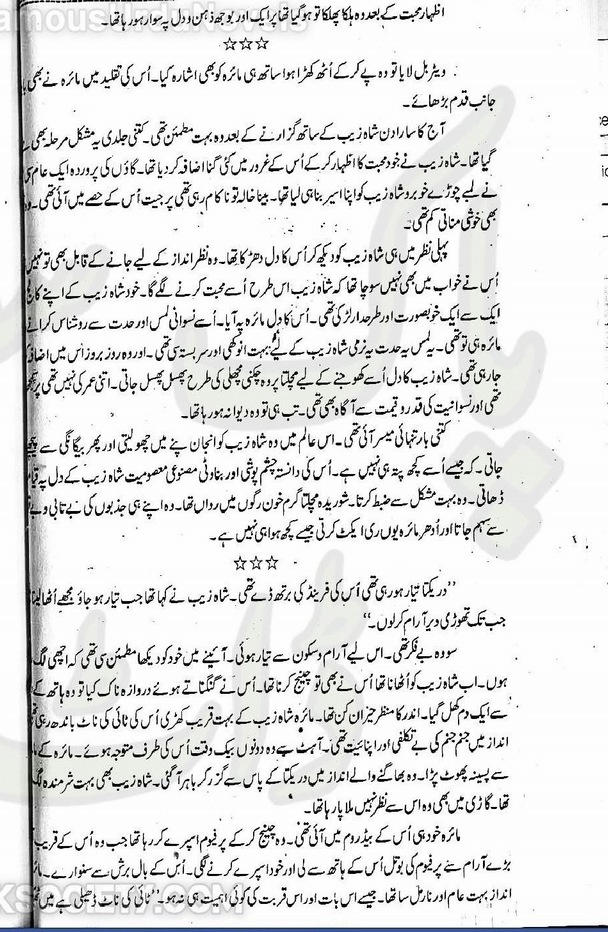 اظہار محبت کے بعد وہ ہلکا پھلکا تو ہو گیا تھا پر ایک اور بوجھ ذہن و دل پہ سوار ہو رہا تھا۔
☆☆☆
ویٹر بل لایا تو وہ پے کر کے اُٹھ کھڑا ہوا ساتھ ہی مائرہ کو بھی اشارہ کیا۔ اُس کی تقلید میں مائرہ نے بھی
جانب قدم بڑھائے۔
آج کا سارا دن شاہ زیب کے ساتھ گزارنے کے بعد وہ بہت مطمئن تھی۔ کتنی جلدی یہ مشکل مرحلہ بھی
گیا تھا۔ شاہ زیب نے خود محبت کا اظہار کر کے اُس کے غرور میں کئی گنا اضافہ کر دیا تھا۔ گاؤں کی پروردہ ایک عام سی
نے لمبے چوڑے خوبرو شاہ زیب کو اپنا اسیر بنا ہی لیا تھا۔ بینا خالہ تو ناکام رہی تھی پر جیت اُس کے حصے میں آئی تھی۔
بھی خوشی مناتی کم تھی۔
پہلی نظر میں ہی شاہ زیب کو دیکھ کر اُس کا دل دھڑکا تھا۔ وہ نظر انداز کے لیے جانے کے قابل بھی تو نہیں
اُس نے خواب میں بھی نہیں سوچا تھا کہ شاہ زیب اس طرح اُسے محبت کرنے لگے گا۔ خود شاہ زیب کے اپنے
ایک سے ایک خوبصورت اور طرحدار لڑکی تھی۔ اُس کا دل مائرہ پہ آیا۔ اُسے نسوانی لمس اور حدت سے روشناس کرانے
مائرہ ہی تو تھی۔ یہ لمس یہ حدت یہ نرمی شاہ زیب کے لیے بہت انوکھی اور سربستہ سی تھی۔ اور وہ روز بروز اس میں اضافہ
جا رہی تھی۔ شاہ زیب کا دل اُسے کھوجنے کے لیے مچلتا پر وہ چکنی مچھلی کی طرح پھسل پھسل جاتی۔ اتنی عمر کی نہیں تھی پر
تھی اور نسوانیت کی قدر و قیمت سے آگاہ بھی تھی۔ تب ہی تو وہ دیوانہ ہو رہا تھا۔
کتنی بار تنہائی میسر آئی تھی۔ اس عالم میں وہ شاہ زیب کو انجان پنے میں چھو لیتی اور پھر بیگانگی سے
جاتی۔ کہ جیسے اُسے کچھ پتہ ہی نہیں ہے۔ اُس کی دانستہ چشم پوشی اور بناوٹی مصنوعی معصومیت شاہ زیب کے دل پہ
ڈھاتی۔ وہ بہت مشکل سے ضبط کرتا۔ شوریدہ مچلتا گرم خون رگوں میں رواں تھا۔ وہ اپنے ہی جذبوں کی بے تابی و
سے سہم جاتا اور اُدھر مائرہ یوں ری ایکٹ کرتی جیسے کچھ ہوا ہی نہیں ہے۔
☆☆☆
’’دریکتا تیار ہو رہی تھی اُس کی فرینڈ کی برتھ ڈے تھی۔ شاہ زیب نے کہا تھا جب تیار ہو جاؤ مجھے اُٹھا لینا
جب تک تھوڑی دیر آرام کر لوں۔‘‘
سو وہ بے فکر تھی۔ اس لیے آرام و سکون سے تیار ہوئی۔ آئینے میں خود کو دیکھا مطمئن سی تھی کہ اچھی لگ
ہوں۔ اب شاہ زیب کو اُٹھانا تھا اُس نے بھی تو چینج کرنا تھا۔ اُس نے گنگناتے ہوئے دروازہ ناک کیا تو وہ ہاتھ کے
سے ایک دم کھل گیا۔ اندر کا منظر حیران کن تھا۔ مائرہ شاہ زیب کے بہت قریب کھڑی اُس کی ٹائی کی ناٹ باندھ رہی تھی
انداز میں جنم جنم کی بے تکلفی اور اپنائیت تھی۔ آہٹ پہ وہ دونوں بیک وقت اُس کی طرف متوجہ ہوئے۔ مائرہ کے
سے پسینہ پھوٹ پڑا۔ وہ بھاگنے والے انداز میں دریکتا کے پاس سے گزر کر باہر آ گئی۔ شاہ زیب بھی بہت شرمندہ لگ
تھا۔ گاڑی میں بھی وہ اس سے نظر نہیں ملا پا رہا تھا۔
مائرہ خود ہی اُس کے بیڈ روم میں آئی تھی۔ وہ چینج کر کے پرفیوم اسپرے کر رہا تھا جب وہ اُس کے قریب
بڑے آرام سے پرفیوم کی بوتل اُس کے ہاتھ سے لی اور خود اسپرے کرنے لگی۔ اُس کے بال برش سے سنوارے۔
انداز بہت عام اور نارمل سا تھا۔ جیسے اس بات اور اس قربت کی کوئی اہمیت ہی نہ ہو۔ ’’ٹائی کی ناٹ ڈھیلی ہے میں